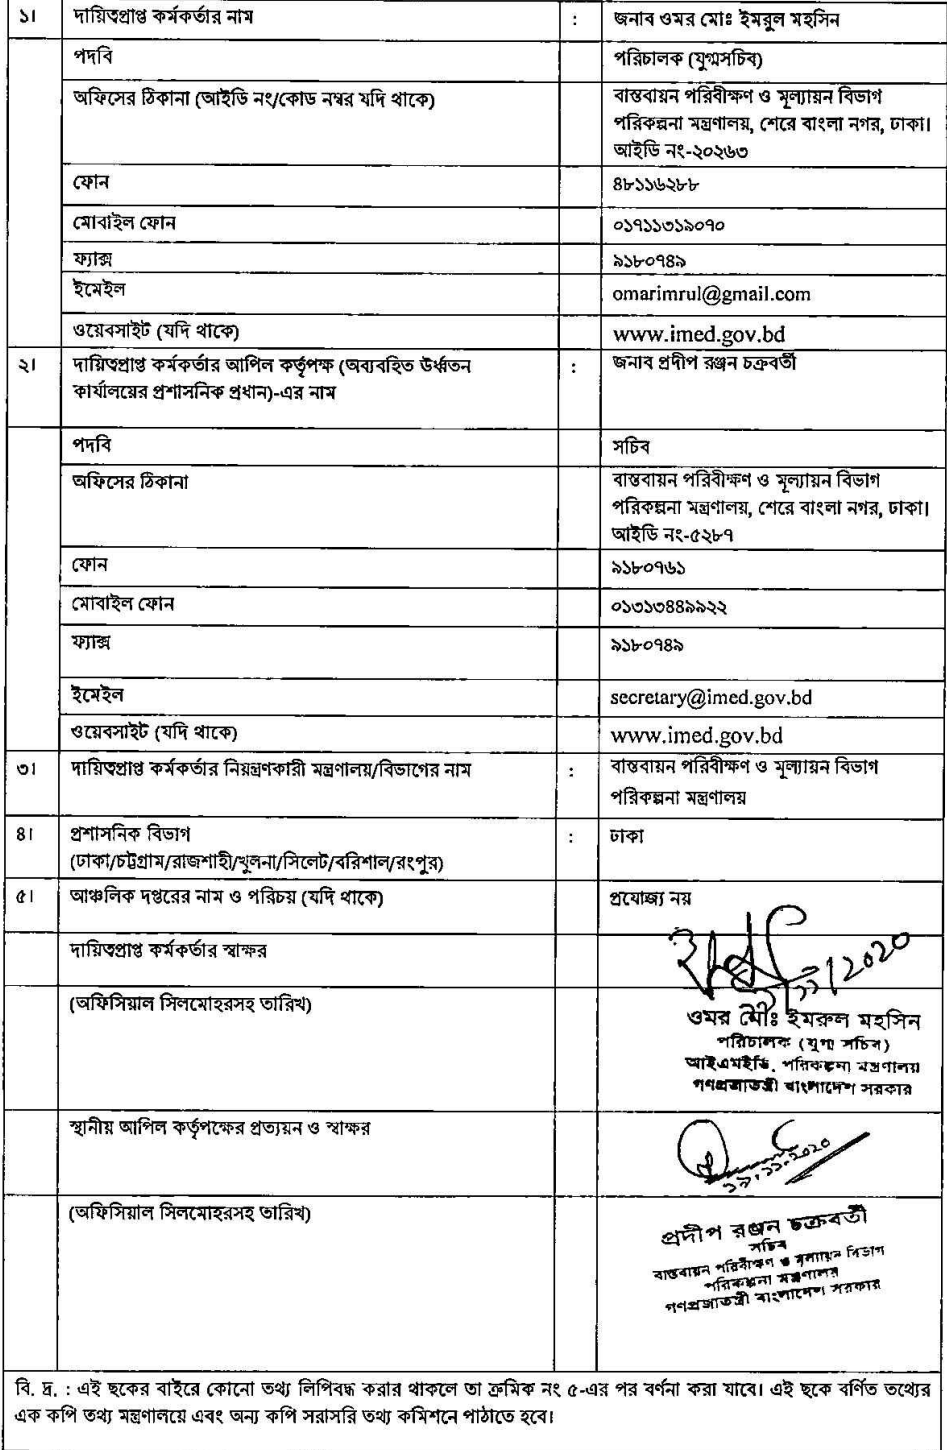 ১। দায়িত্বপ্রাপ্ত কর্মকর্তার নাম : জনাব ওমর মোঃ ইমরুল মহসিন
পদবি পরিচালক (যুগ্মসচিব)
অফিসের ঠিকানা (আইডি নং/কোড নম্বর যদি থাকে) বাস্তবায়ন পরিবীক্ষণ ও মূল্যায়ন বিভাগ
পরিকল্পনা মন্ত্রণালয়, শেরে বাংলা নগর, ঢাকা।
আইডি নং-২০২৬৩
ফোন ৪৮১১৬২৮৮
মোবাইল ফোন ০১৭১১৩১৯০৭০
ফ্যাক্স ৯১৮০৭৪৯
ইমেইল omarimrul@gmail.com
ওয়েবসাইট (যদি থাকে) www.imed.gov.bd
২। দায়িত্বপ্রাপ্ত কর্মকর্তার আপিল কর্তৃপক্ষ (অব্যবহিত উর্ধ্বতন : জনাব প্রদীপ রঞ্জন চক্রবর্তী
কার্যালয়ের প্রশাসনিক প্রধান)-এর নাম
পদবি সচিব
অফিসের ঠিকানা বাস্তবায়ন পরিবীক্ষণ ও মূল্যায়ন বিভাগ
পরিকল্পনা মন্ত্রণালয়, শেরে বাংলা নগর, ঢাকা।
আইডি নং-৫২৮৭
ফোন ৯১৮০৭৬১
মোবাইল ফোন ০১৩১৩৪৪৯৯২২
ফ্যাক্স ৯১৮০৭৪৯
ইমেইল secretary@imed.gov.bd
ওয়েবসাইট (যদি থাকে) www.imed.gov.bd
৩। দায়িত্বপ্রাপ্ত কর্মকর্তার নিয়ন্ত্রণকারী মন্ত্রণালয়/বিভাগের নাম : বাস্তবায়ন পরিবীক্ষণ ও মূল্যায়ন বিভাগ
পরিকল্পনা মন্ত্রণালয়
৪। প্রশাসনিক বিভাগ : ঢাকা
(ঢাকা/চট্টগ্রাম/রাজশাহী/খুলনা/সিলেট/বরিশাল/রংপুর)
৫। আঞ্চলিক দপ্তরের নাম ও পরিচয় (যদি থাকে) প্রযোজ্য নয়
দায়িত্বপ্রাপ্ত কর্মকর্তার স্বাক্ষর
(অফিসিয়াল সিলমোহরসহ তারিখ) ওমর মোঃ ইমরুল মহসিন
পরিচালক (যুগ্ম সচিব)
আইএমইডি, পরিকল্পনা মন্ত্রণালয়
গণপ্রজাতন্ত্রী বাংলাদেশ সরকার
স্থানীয় আপিল কর্তৃপক্ষের প্রত্যয়ন ও স্বাক্ষর ১৯.১১.২০২০
(অফিসিয়াল সিলমোহরসহ তারিখ) প্রদীপ রঞ্জন চক্রবর্তী
সচিব
বাস্তবায়ন পরিবীক্ষণ ও মূল্যায়ন বিভাগ
পরিকল্পনা মন্ত্রণালয়
গণপ্রজাতন্ত্রী বাংলাদেশ সরকার
বি. দ্র. : এই ছকের বাইরে কোনো তথ্য লিপিবদ্ধ করার থাকলে তা ক্রমিক নং ৫-এর পর বর্ণনা করা যাবে। এই ছকে বর্ণিত তথ্যের
এক কপি তথ্য মন্ত্রণালয়ে এবং অন্য কপি সরাসরি তথ্য কমিশনে পাঠাতে হবে।